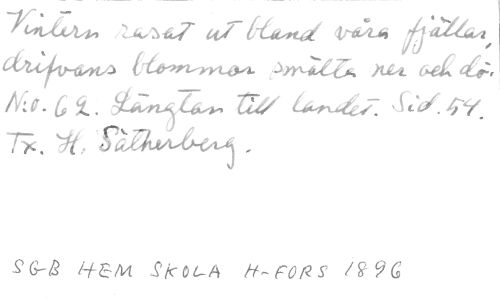 Vintern rasat ut bland våra fjällar,
drifvans blommor smälta ner och dö.
N:o. 62. Längtan till landet. Sid. 54.
Tx. H. Sätherberg.
SGB HEM SKOLA H-FORS 1896